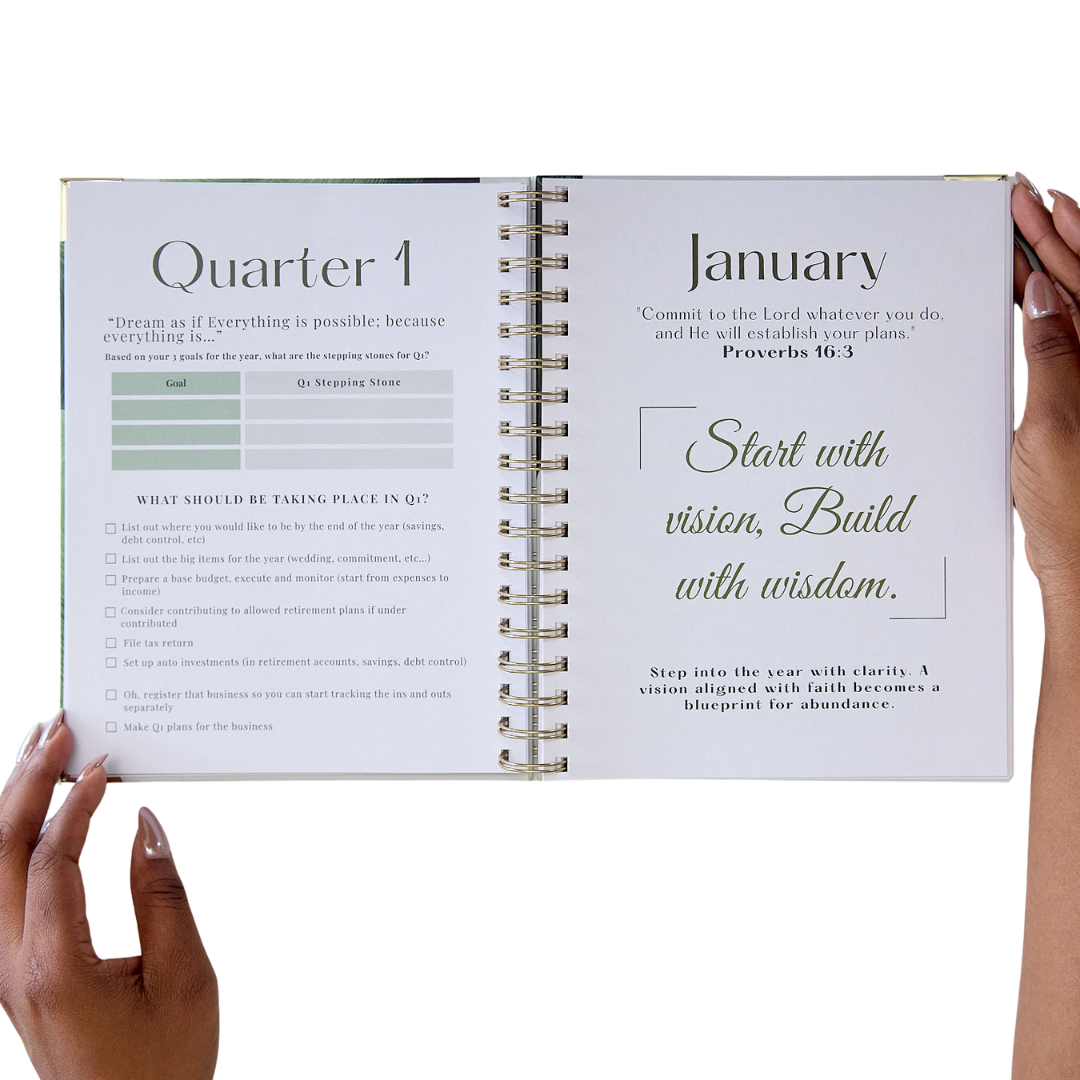 Quarter 1
“Dream as if Everything is possible; because
everything is...”
Based on your 3 goals for the year, what are the stepping stones for Q1?
Goal
Q1 Stepping Stone
WHAT SHOULD BE TAKING PLACE IN Q1?
List out where you would like to be by the end of the year (savings,
debt control, etc)
List out the big items for the year (wedding, commitment, etc...)
Prepare a base budget, execute and monitor (start from expenses to
income)
Consider contributing to allowed retirement plans if under
contributed
File tax return
Set up auto investments (in retirement accounts, savings, debt control)
Oh, register that business so you can start tracking the ins and outs
separately
Make Q1 plans for the business
January
"Commit to the Lord whatever you do,
and He will establish your plans."
Proverbs 16:3
Start with
vision, Build
with wisdom.
Step into the year with clarity. A
vision aligned with faith becomes a
blueprint for abundance.